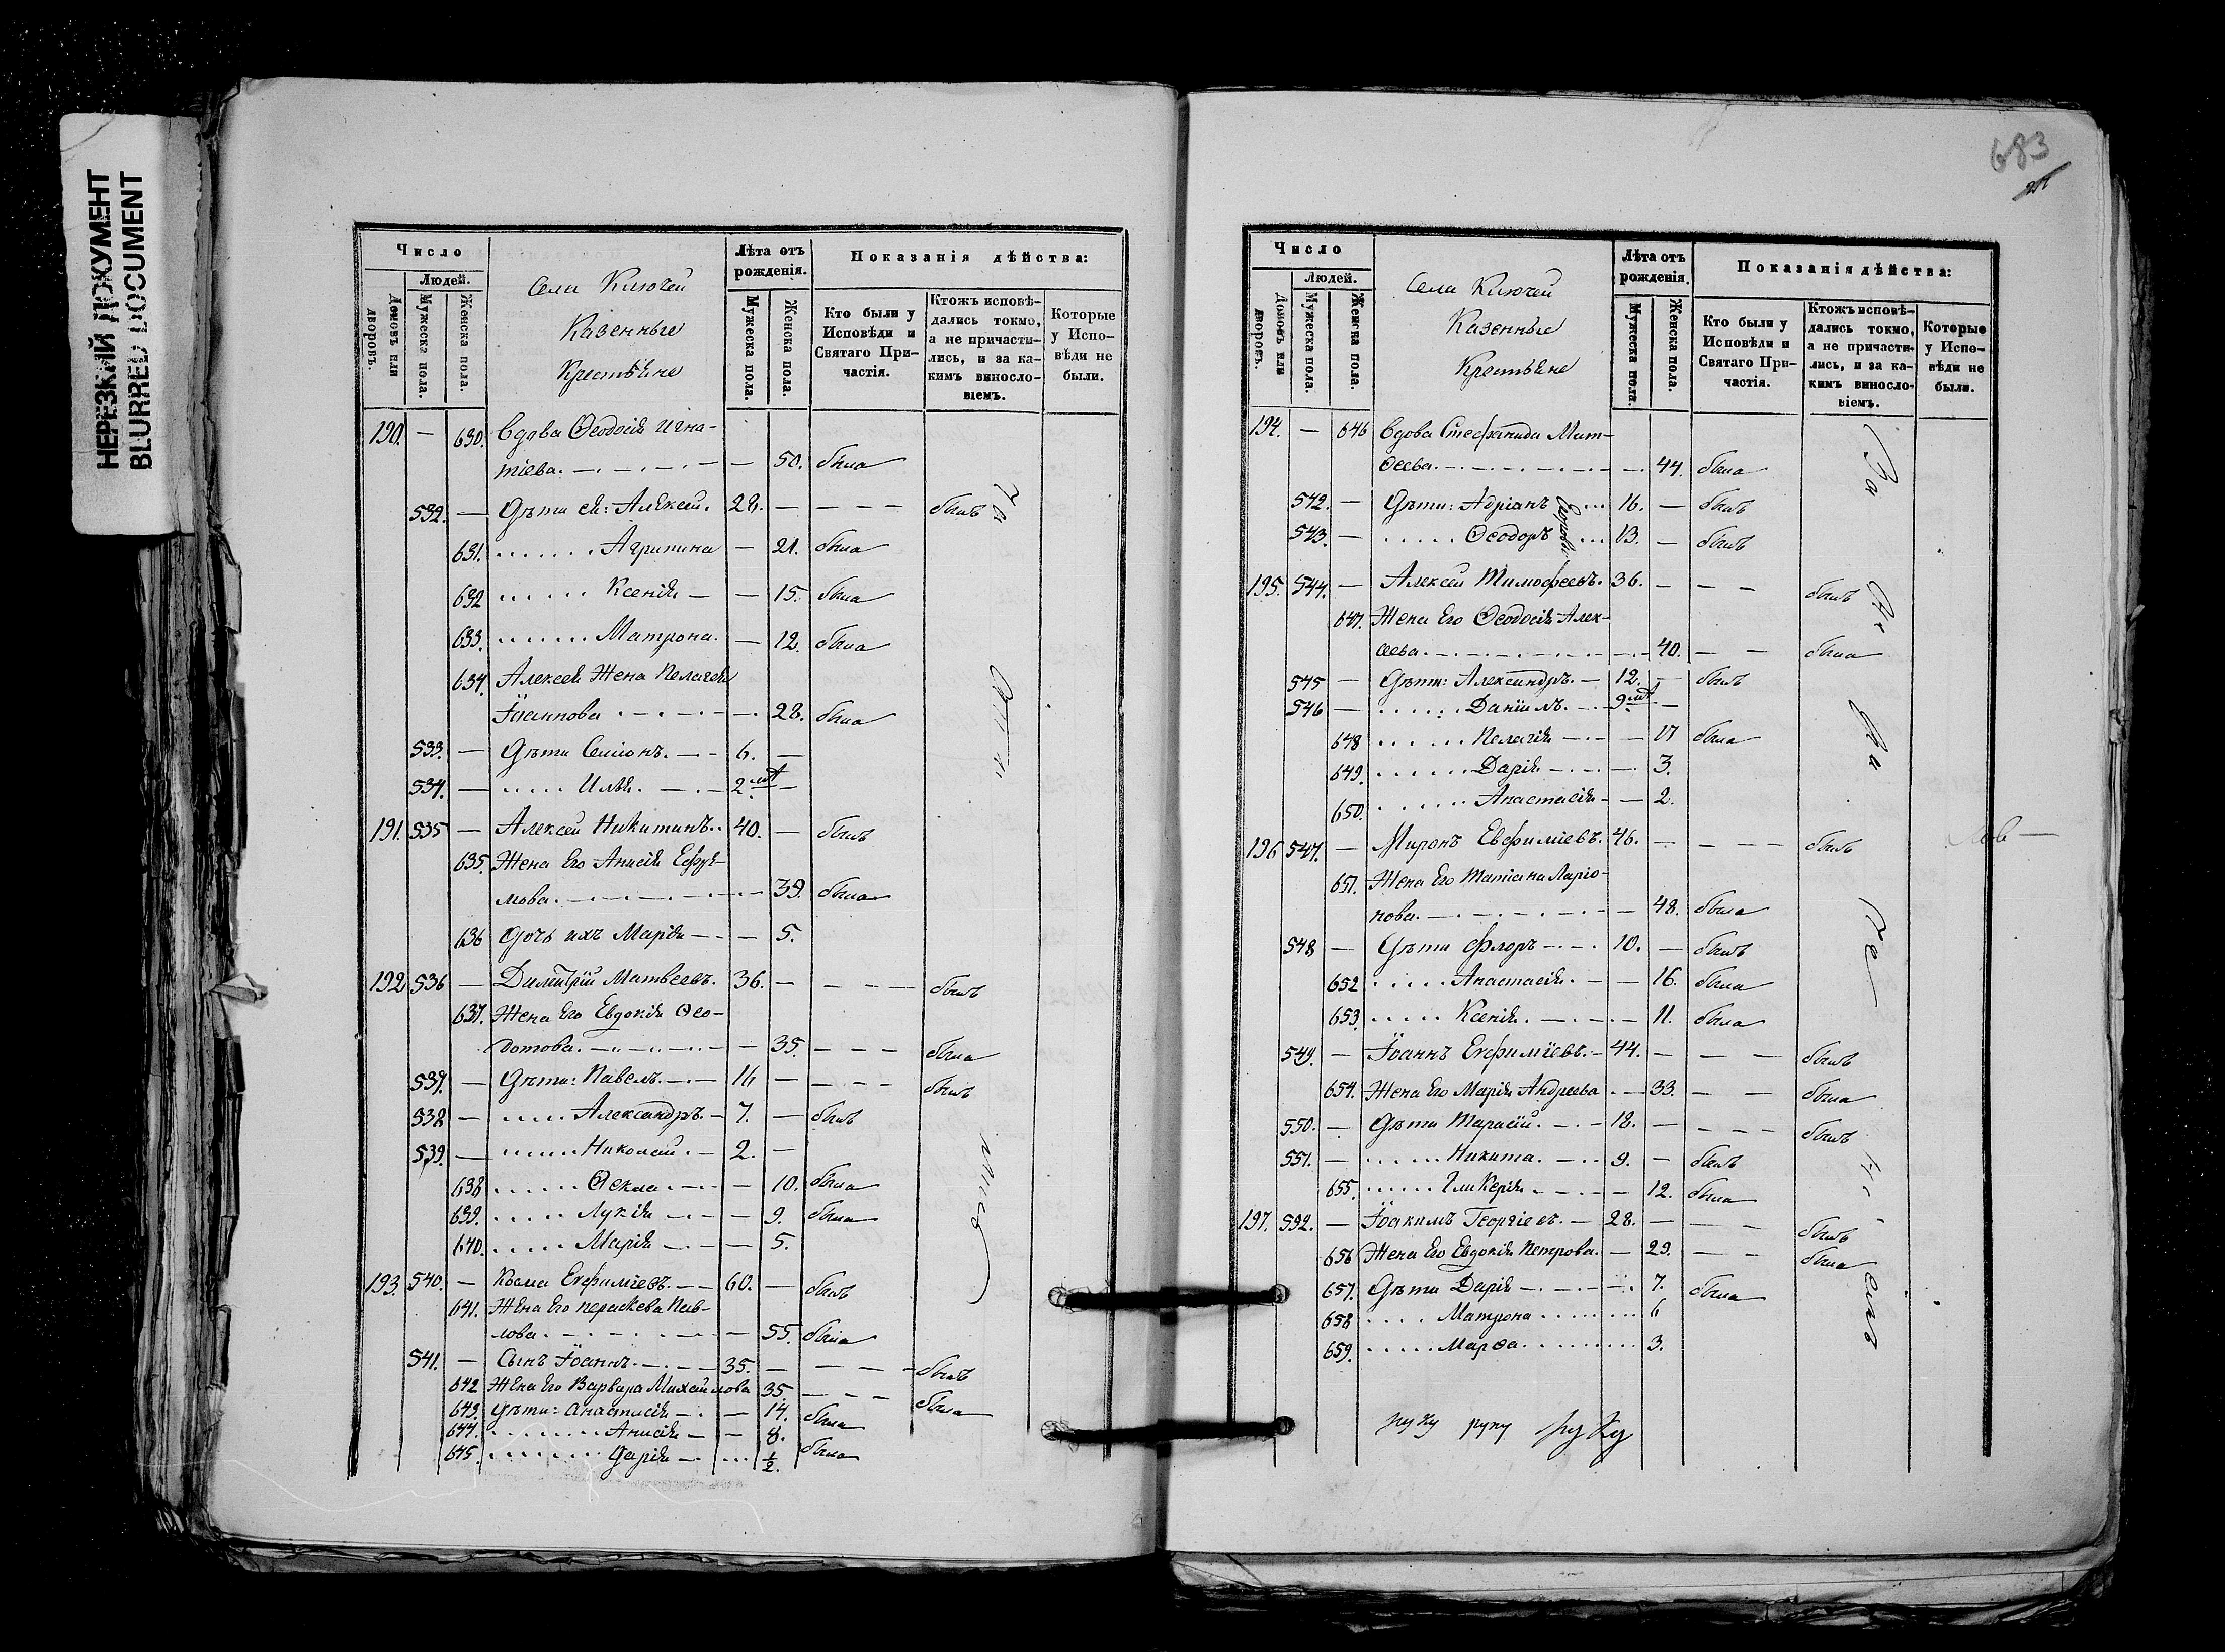 НЕРЕЗКИЙ ДОКУМЕНТ
BLURRED DOCUMENT
Число
Людей.
Домовъ или дворовъ.
Мужеска пола.
Женска пола.
Села Ключей
Казенные
Крестьяне
Лѣта отъ рожденія.
Мужеска пола.
Женска пола.
Показанія дѣйства:
Кто были у Исповѣди и Святаго Причастія.
Ктожъ исповѣдались токмо, а не причастились, и за какимъ винословіемъ.
Которые у Исповѣди не были.
190. — 630. Вдова Ѳеодосія Игна-
тіева. — 50. была
532. — Дѣти ея: Алексѣй. 28. — — — — былъ
631. Агрипина — 21. была
632 Ксенія — — 15. была
633. Матрона. — 12. была
634. Алексѣя Жена Пелагея
Іоаннова — 28. была
533. — Дѣти Симіонъ. — 6. —
534. — Илья. — 2 —
191. 535 — Алексѣй Никитинъ. 40. — былъ
635. Жена Его Анисія Ефре-
мова. — 39. была
636 Дочь ихъ Марія — — 5.
192 536 — Димитрій Матвеевъ. 36. — — — — былъ
637. Жена Его Евдокія Ѳео-
дотова. — 35. — — — была
537. — Дѣти: Павелъ. — 16 — — — — былъ
538 — Александръ — 7. — былъ
539. — Николай. — 2. —
638 Ѳекла — 10. была
639. Лукія — 9. была
640. Марія — 5.
193. 540. — Косма Евфиміевъ. — 60. — былъ
641. Жена Его Параскева Пав-
лова. — 55. была
541. — Сынъ Іоаннъ. — 35. — — — былъ
642 Жена Его Варвара Михайлова 35. — — — была
643. Дѣти: Анастасія — 14. была
644. Анисія — — 8. была
645. Дарія — 1/2.
683
Число
Людей.
Домовъ или дворовъ.
Мужеска пола.
Женска пола.
Села Ключей
Казенные
Крестьяне
Лѣта отъ рожденія.
Мужеска пола.
Женска пола.
Показанія дѣйства:
Кто были у Исповѣди и Святаго Причастія.
Ктожъ исповѣдались токмо, а не причастились, и за какимъ винословіемъ.
Которые у Исповѣди не были.
194. — 646 Вдова Стефанида Мат-
ѳеева. — 44. была
542. — Дѣти: Адріанъ 16. — былъ
543. — Ѳеодоръ 13. — былъ
195. 544. — Алексѣй Тимофеевъ. 36. — — — былъ
647. Жена Его Ѳеодосія Алек-
сѣева. — 40. — — была
545 — Дѣти: Александръ. — 12. — былъ
546 — Даніилъ. — 9 —
648 Пелагія — 17 была
649. Дарія — 3.
650. Анастасія — 2.
196 547. — Миронъ Евфиміевъ. 46. — — — — былъ
651. Жена Его Татіана Ларіо-
нова. — 48. была
548 — Дѣти Флоръ — 10. — былъ
652 Анастасія. — — 16. была
653. Ксенія. — 11. была
549. — Іоаннъ Евфиміевъ. — 44. — — — былъ
654. Жена Его Марія Андреева — 33. — — была
550. — Дѣти Тарасій. — 18. — — — — былъ
551. — Никита. — 9. — былъ
655. Гликерія — 12. была
197. 592. — Іоакимъ Георгіевъ. — 28. — — — былъ
656 Жена Его Евдокія Петрова. — 29. — — была
657. Дѣти Дарія — 7. была
658 Матрона 6
659. Марѳа 3.
руку руку руку